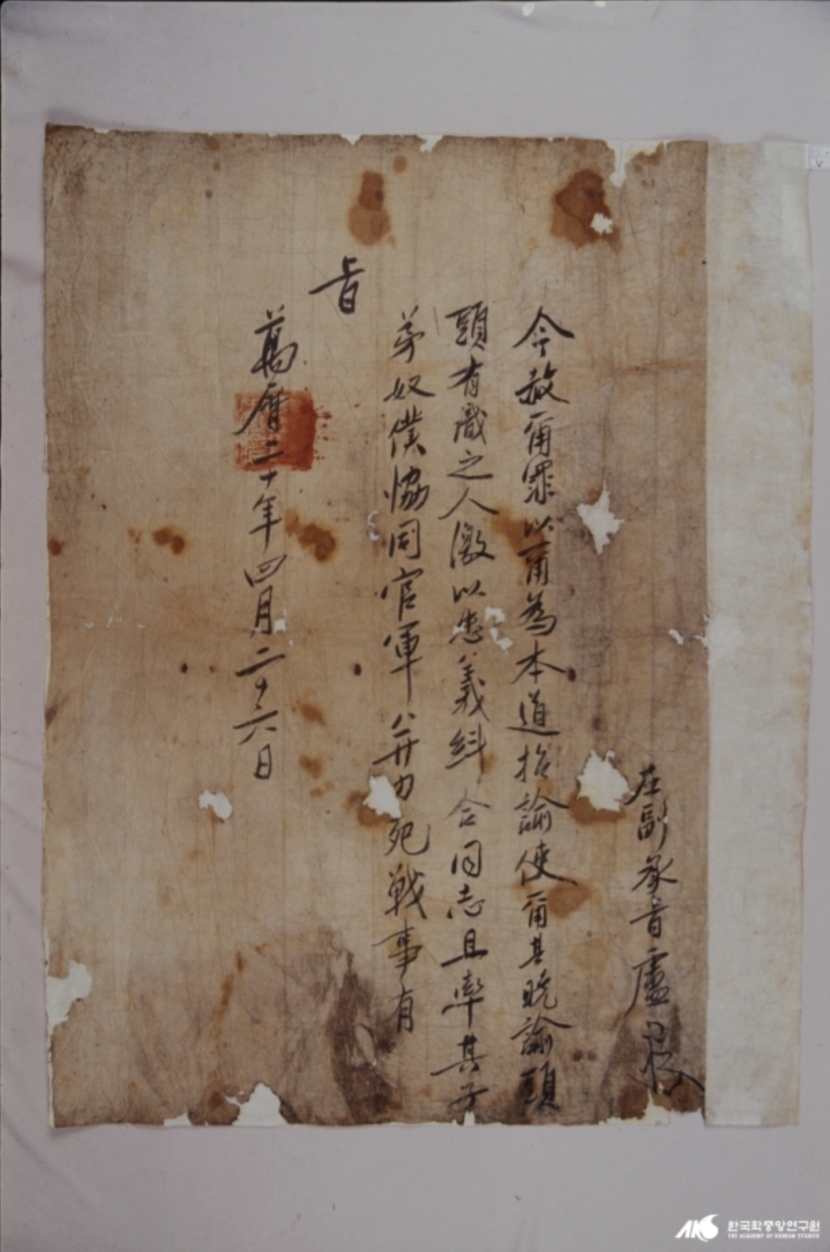 左副承旨盧
今赦爾罪以爾為本道招諭使爾其曉諭頭
頭有識之人激以忠義糾合同志且率其子
弟奴僕恊同官軍幷力死戰事有
旨
萬曆二十年四月二十六日
한국학중앙연구원
THE ACADEMY OF KOREAN STUDIES